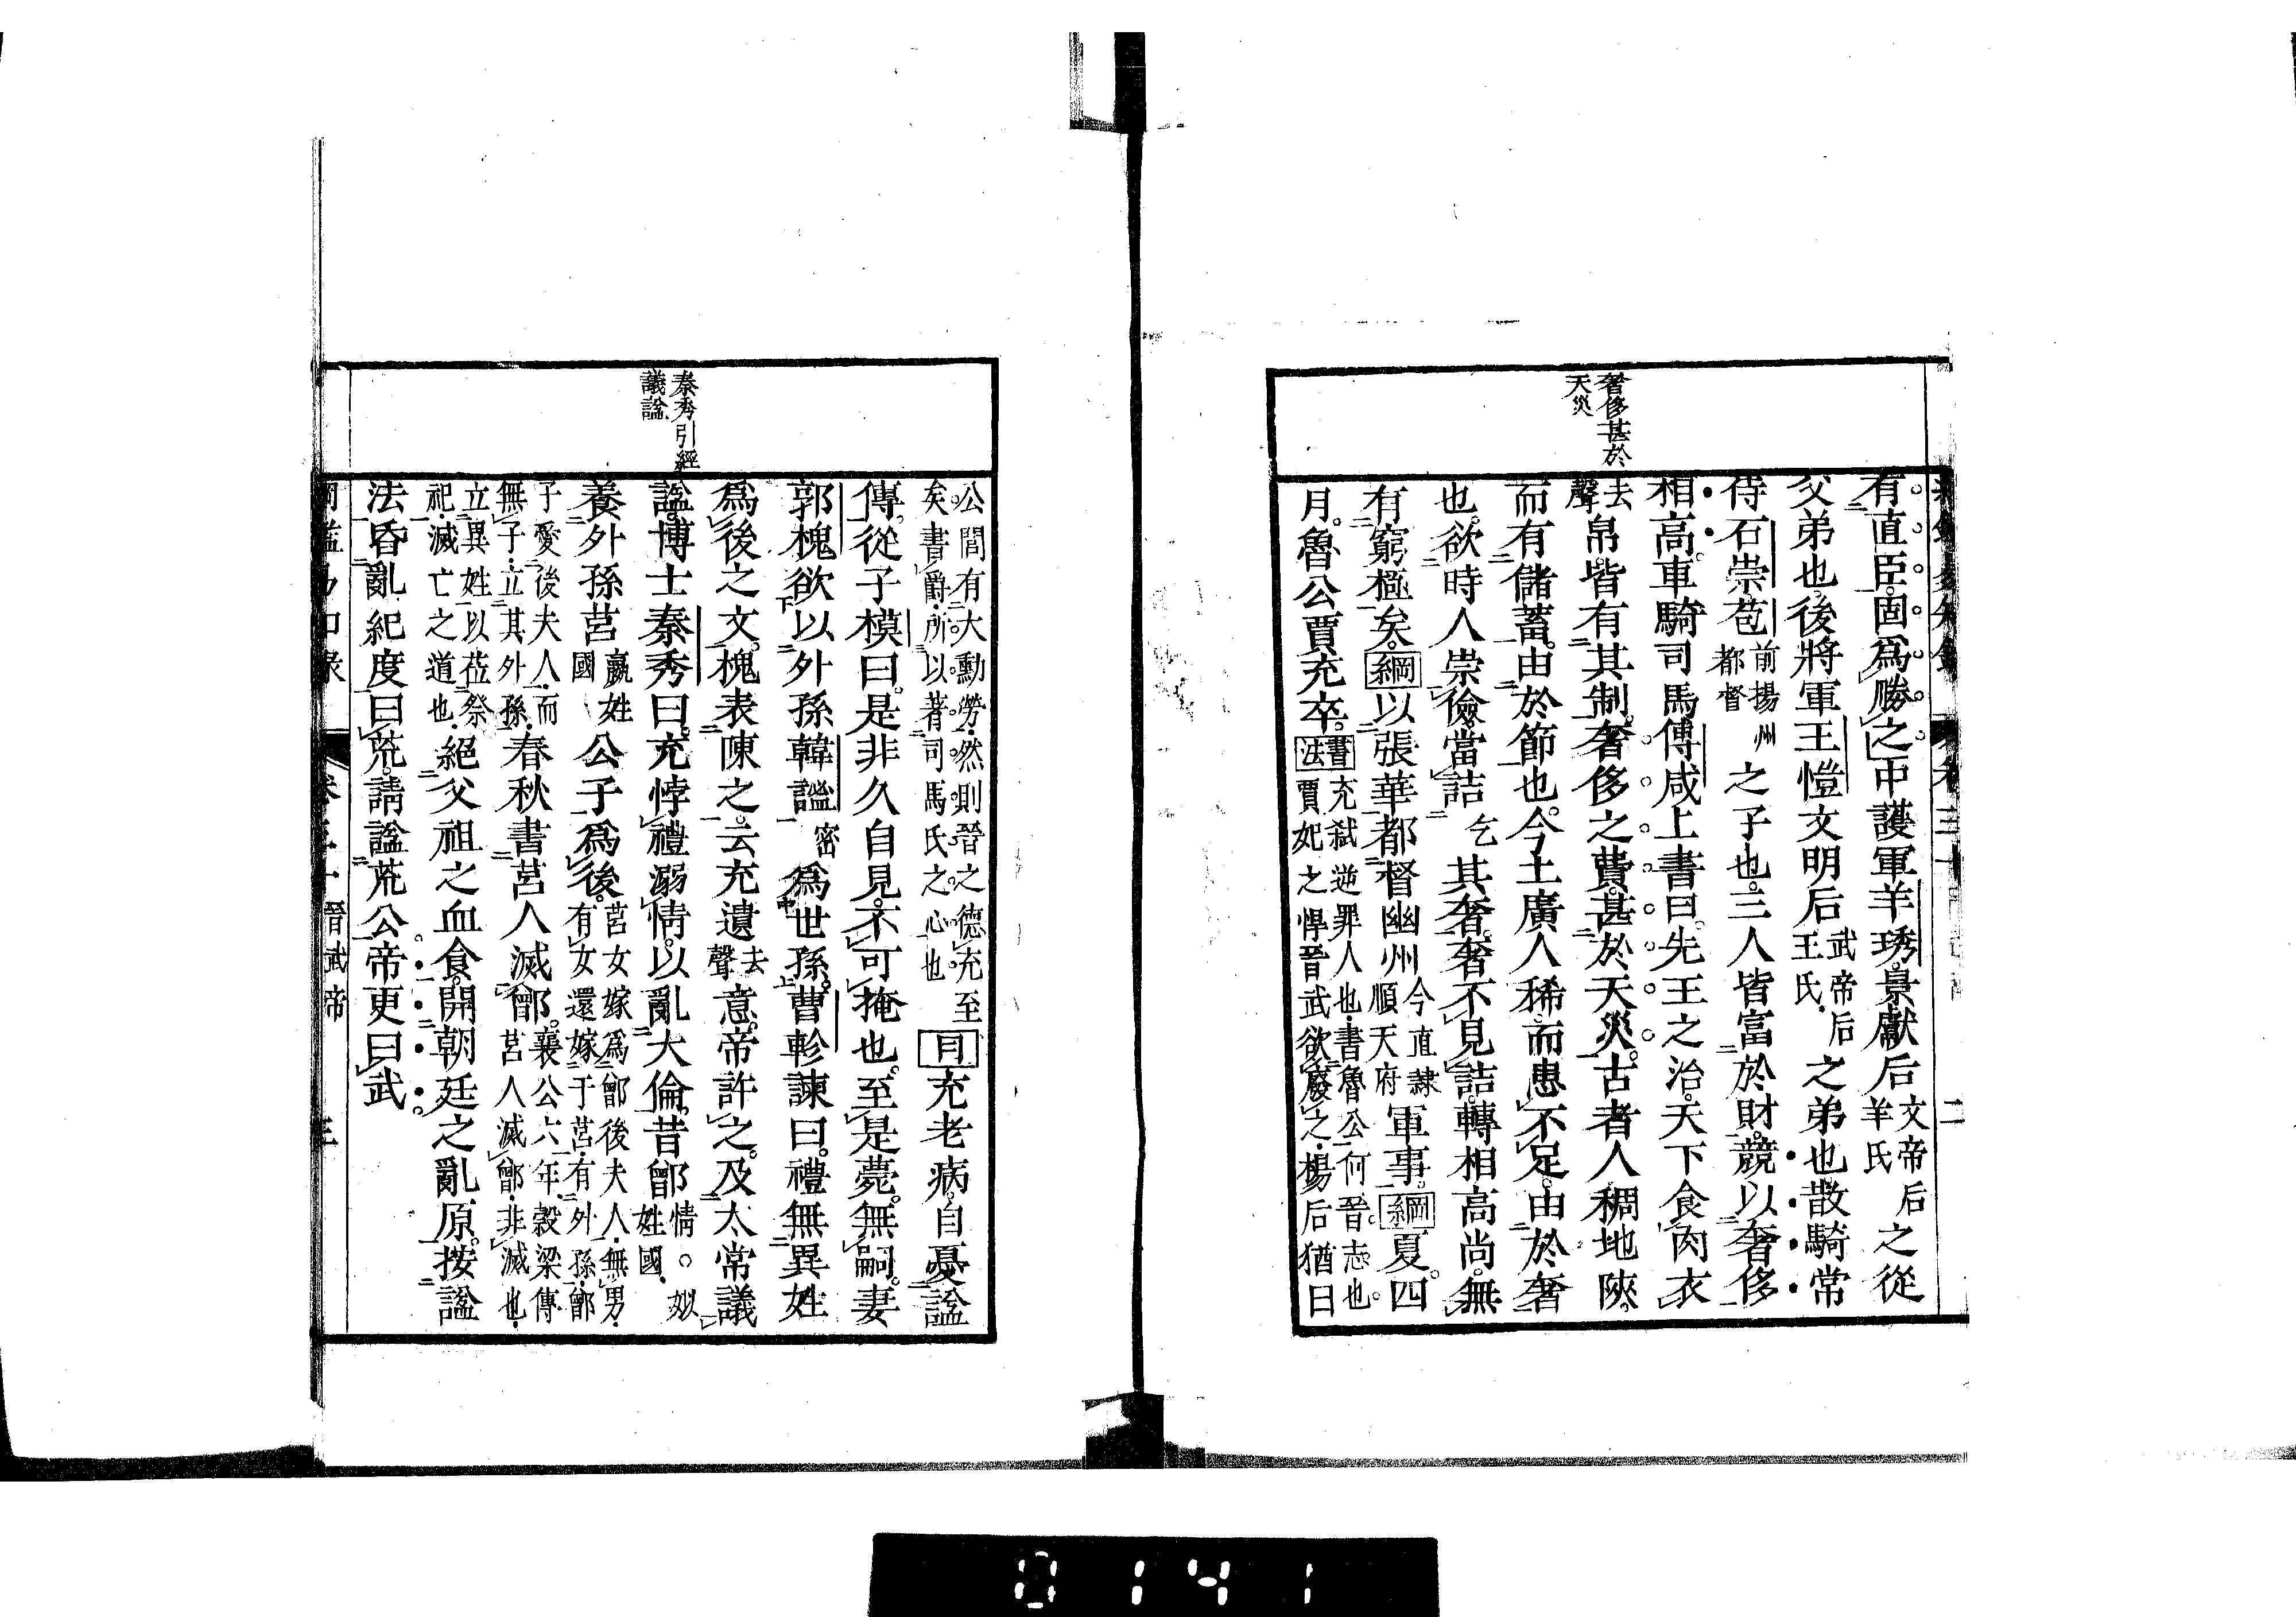 奢侈甚於
天災
有直臣。固爲勝之。中護軍羊琇。景獻后文帝后羊氏之從
父弟也。後將軍王愷文明后武帝后王氏。之弟也。散騎常
侍石崇苞前揚州都督之子也。三人皆富於財。競以奢侈
相高。車騎司馬傅咸上書曰。先王之治。天下食肉衣
去聲帛皆有其制。奢侈之費。甚於天災。古者人稠地陝。
而有儲蓄。由於節也。今土廣人稀。而患不足。由於奢
也。欲時人崇儉。當詰乞其奢。奢不見詰。轉相高尚。無
有窮極矣。綱以張華都督幽州今直隷順天府軍事。綱夏。四
月。魯公賈充卒。書法充弑逆罪人也。書魯公何。晉志也。賈妃之悍晉武欲廢之。楊后猶曰
秦秀引經
議謚
公閭有大勳勞。然則晉之德充至矣。書爵。所以著司馬氏之心也目充老病。自憂謚
傳。從子模曰。是非久自見。不可掩也。至是薨。無嗣。妻
郭槐欲以外孫韓謐密爲世孫。曹軫諫曰。禮無異姓
爲後之文。槐表陳之。云充遺去聲意。帝許之。及太常議
謚。博士秦秀曰。充悖禮溺情。以亂大倫。昔鄫情。姒姓國。
養外孫莒嬴姓國公子爲後。莒女嫁爲鄫後夫人。無男。有女還嫁于莒。有外孫。鄫
子愛後夫人。而無子。立其外孫。春秋書莒人滅鄫。襄公六年。穀梁傳莒人滅鄫。非滅也。
立異姓以莅祭祀。滅亡之道也。絕父祖之血食。開朝廷之亂原。按謚
法昏亂紀度曰荒。請謚荒公。帝更曰武
晉武帝 三